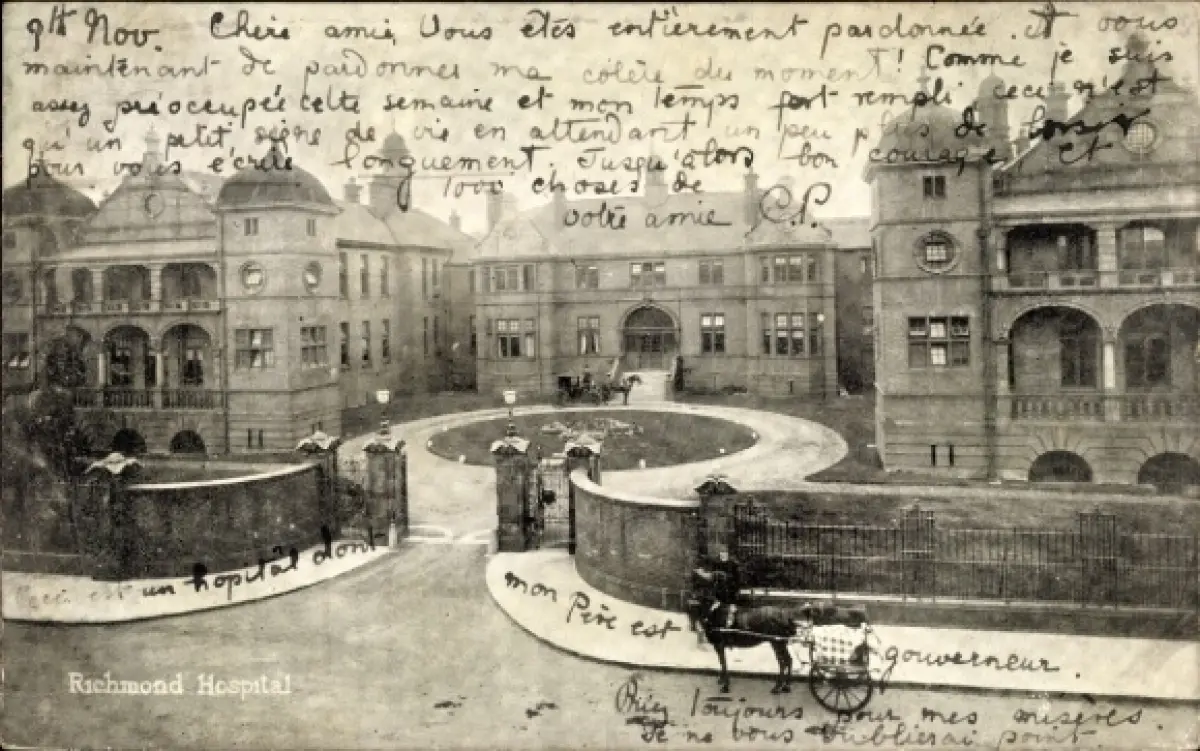 9th Nov. Chère amie, Vous êtes entièrement pardonnée. et vous
maintenant de pardonner ma colère du moment! Comme je suis
assez préoccupée cette semaine et mon temps fort rempli ceci n'est
qu'un petit signe de vie en attendant un peu plus de loisir
pour vous écrire longuement. Jusqu'alors bon courage et
1000 choses de
votre amie C.P.
Ceci est un hôpital dont
mon Père est
gouverneur.
Richmond Hospital
Priez toujours pour mes misères.
Je ne vous oublierai point